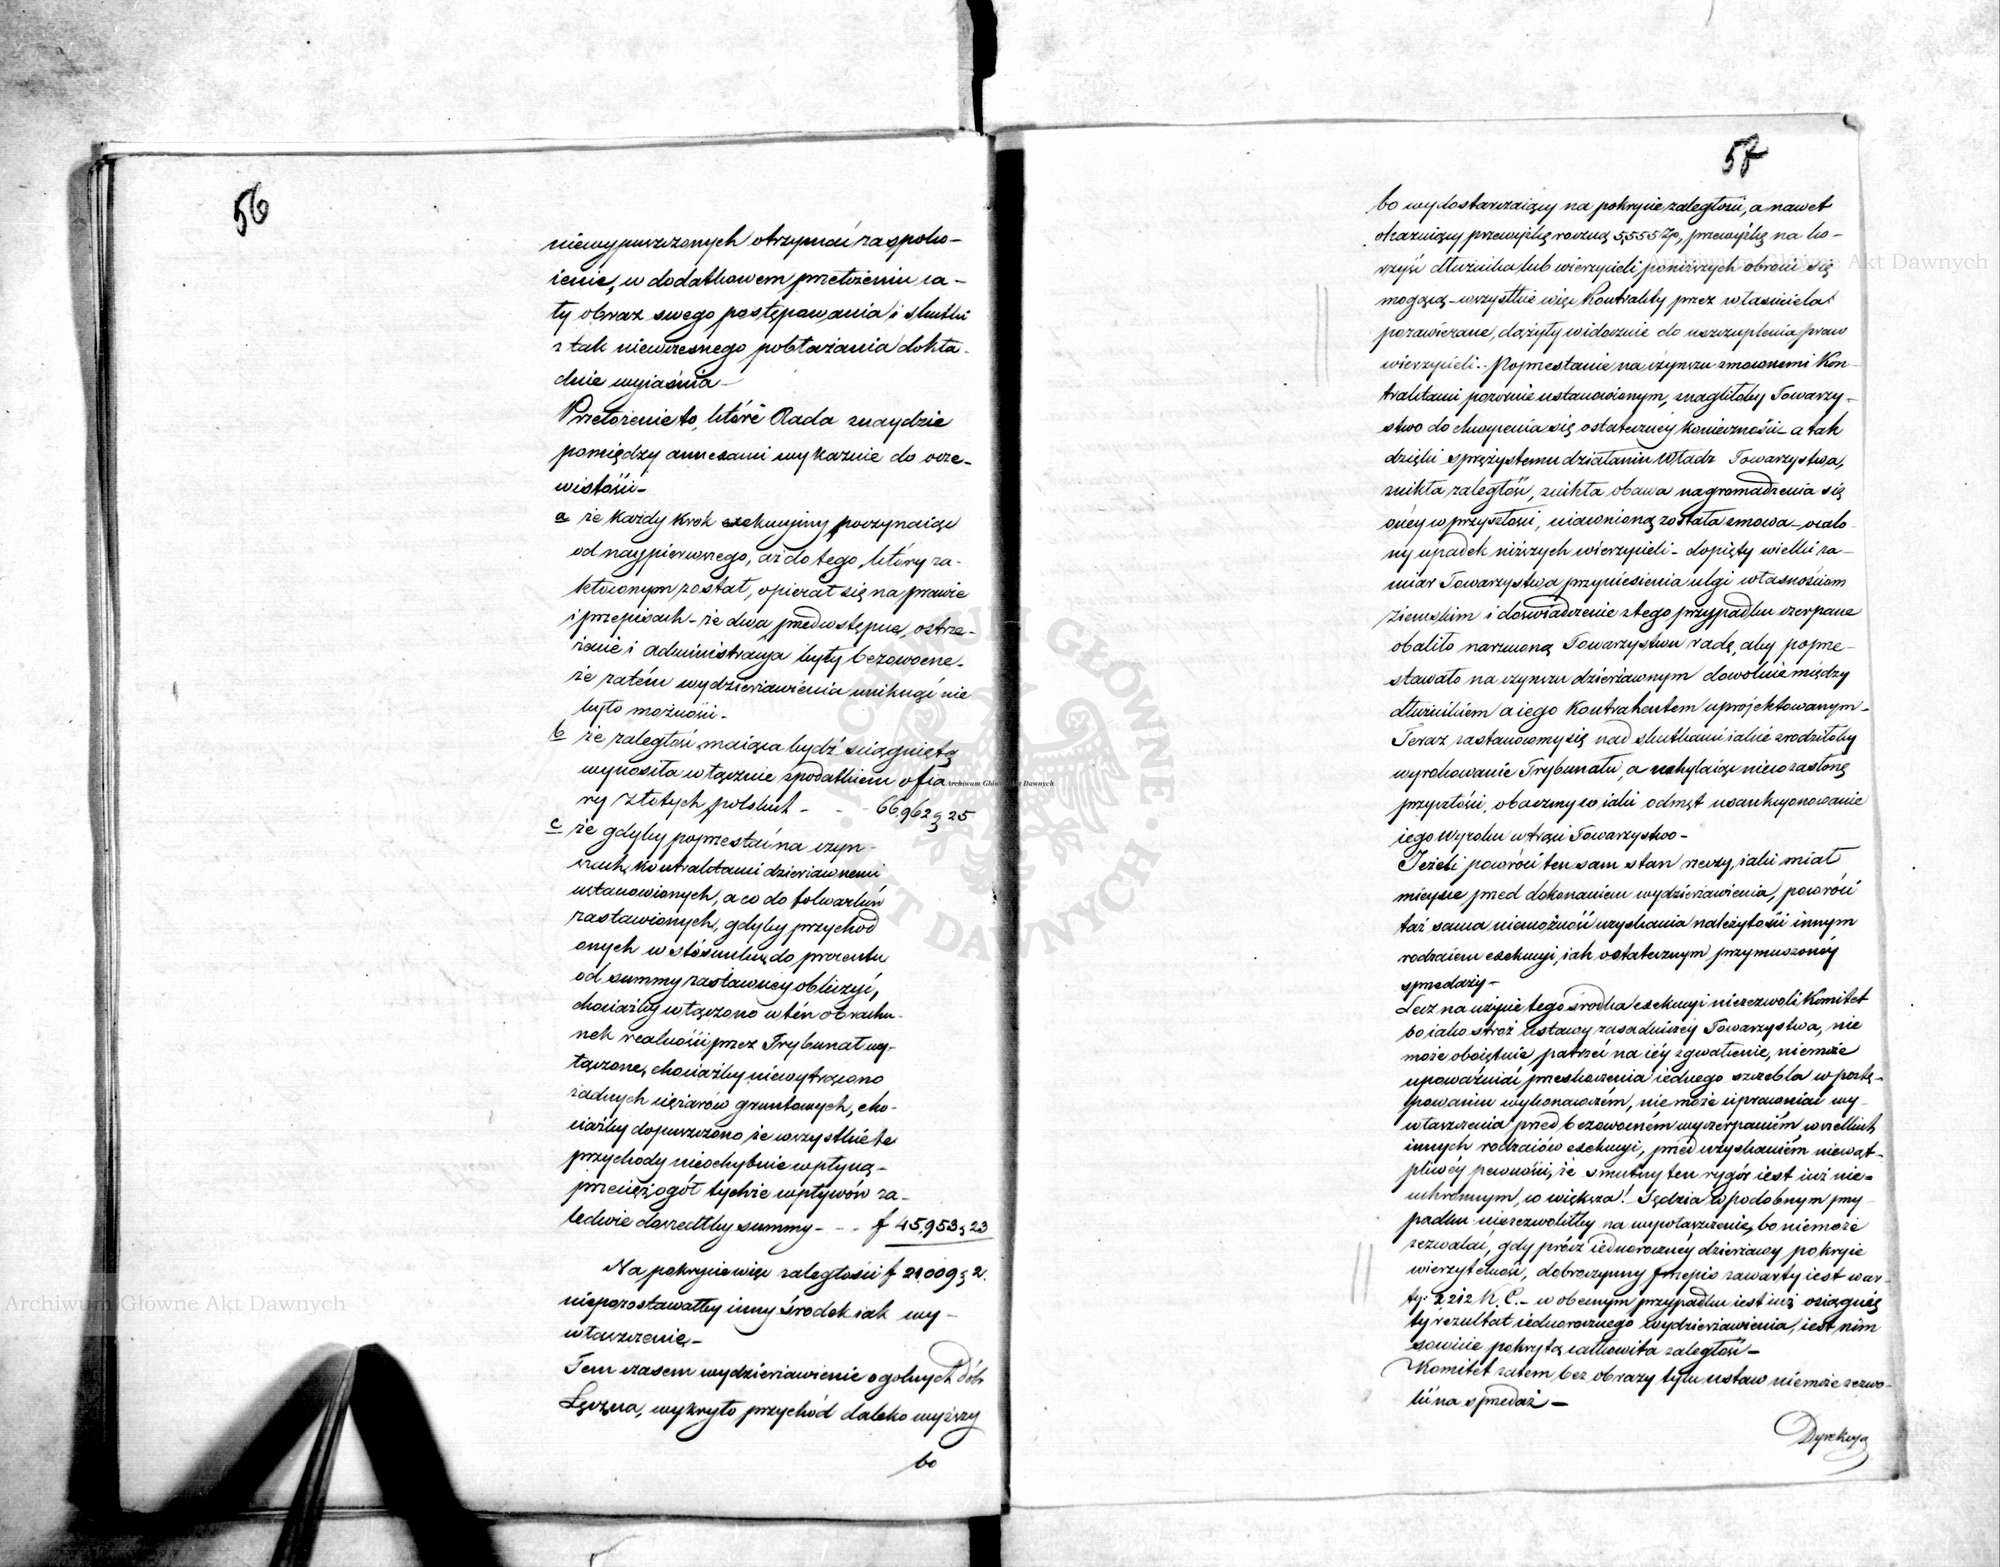 56
niewypuszczonych otrzymać zaspoko-
ienie, w dodatkowem przełożeniu ca-
ły obraz swego postępowania i skutki
z tak niewczesnego pobłażania dokła-
dnie wyiaśnia-
Przełożenie to, które Rada znaydzie
pomiędzy annexami wykazuie do ocze-
wistości-
a że każdy krok exekucyiny poczynaiąc
od naypierwszego, aż do tego, który za-
kończonym został, opierał się na prawie
i przepisach- że dwa przedwstępne, ostrze-
żenie i administracya były bezowocne-
że zatém wydzierżawienia uniknąć nie
było możności-
b że zaległość maiąca bydź ściągniętą
wynosiła włącznie z podatkiem ofia
ry Złotych polskich - - 66,962 g 25
c że gdyby poprzestać na czyn-
szach, kontraktami dzierżawnemi
ustanowionych, a co do folwarków
zastawionych, gdyby przychod
onych w stósunku do procentu
od summy zastawney obliczyć,
chociażby włączono w tén obrachu-
nek realności przez Trybunał wy-
łączone, chociażby niewytrącono
żadnych ciężarów gruntowych, cho-
ciażby dopuszczono że wszystkie te
przychody nieochybnie wpłyną-
przecięż ogół tychże wpływów za-
ledwie doszedłby summy - - - f 45,953 g 23
Na pokrycie więc zaległości f 21.009 g 2.
niepozostawałby inny środek iak wy-
właszczenie-
Tem czasem wydzierżawienie ogolnych dóbr
Łęczna, wykryło przychód daleko wyższy
bo
57
bo wydostarczaiący na pokrycie zaległości, a nawet
okazuiący przewyżkę roczną 5,555 Zp, przewyżkę na ko-
rzyść dłużnika lub wierzycieli poniższych obrocić się
mogącą- wszystkie więc Kontrakty przez właściciela
pozawierane, dążyły widocznie do uszczuplenia praw
wierzycieli.- Poprzestanie na czynszu zmownemi Kon-
traktami pozornie ustanowionym, znagliłoby Towarzy-
stwo do chwycenia się ostateczney konieczności- a tak
dzięki sprężystemu działaniu Władz Towarzystwa,
znikła zaległość, znikła obawa nagromadzenia się
onéy w przyszłości, uiawnioną została zmowa- ocalo-
ny upadek niższych wierzycieli- dopięty wielki za-
miar Towarzystwa przyniesienia ulgi własnościom
Ziemskim i doświadczenie z tego przypadku czerpane
obaliło narzuconą Towarzystwu radę, aby poprze-
stawało na czynszu dzierżawnym dowolnie między
dłużnikiem a iego Kontrahentem uprojektowanym-
Teraz zastanowmy się nad skutkami iakie zrodziłoby
wyrokowanie Trybunału, a uchylaiąc nieco zasłonę
przyszłości, obaczmy w iaki odmęt usankcyonowanie
iego wyroku wtrąci Towarzystwo-
Jeżeli powróci ten sam stan rzeczy, iaki miał
mieysce przed dokonaniem wydzierżawienia, powróci
taż sama niemożność uzyskania należytości innym
rodzaiem exekucyi, iak ostatecznym przymuszonéy
sprzedaży-
Lecz na użycie tego środka exekucyi niezezwoli Komitet
bo iako stróż ustawy zasadniczéy Towarzystwa, nie
może oboiętnie patrzeć na iéy zgwałcenie, niemoże
upoważniać przeskoczenia iednego szczebla w postę-
powaniu wykonawczém, nie może uprawniać wy-
właszczenia przed bezowocném wyczerpaniém wszelkich
innych rodzaiów exekucyi, przed uzyskaniém niewąt-
pliwéy pewności, że smutny ten rygór iest iuż nie-
uchronnym, co większa! Sędzia w podobnym przy-
padku niezezwoliłby na wywłaszczenie, bo niemoże
zezwalać, gdy przez iednorocznéy dzierżawy pokrycie
wierzytelności, dobroczynny przepis zawarty iest w ar-
ty: 2212 K. C.- w obecnym przypadku iest iuż osiągnię
ty rezultat iednorocznego wydzierżawienia, iest nim
sowicie pokrytą całkowita zaległość-
Komitet zatem bez obrazy tylu ustaw niemoże zezwo-
lić na sprzedaż-
Dyrekcya
Archiwum Główne Akt Dawnych
Archiwum Główne Akt Dawnych
Archiwum Główne Akt Dawnych
ARCHIWUM GŁÓWNE AKT DAWNYCH